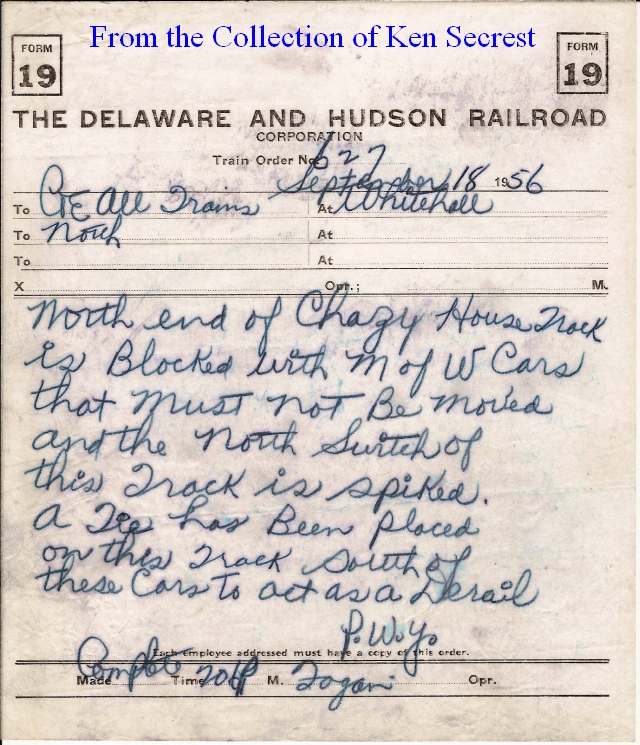 From the Collection of Ken Secrest
FORM 19
FORM 19
THE DELAWARE AND HUDSON RAILROAD
CORPORATION
Train Order No. 627
September 18 1956
To C&E All Trains At Whitehall
To North At
To At
X Opr.; M.
North end of Chazy House Track
is Blocked with M of W Cars
that Must not Be Moved
and the North Switch of
this Track is spiked.
A Tie has Been placed
on this Track South of
these Cars To act as a Derail
P.W.Y.
Each employee addressed must have a copy of this order.
Made Complete Time 701P M. Opr.